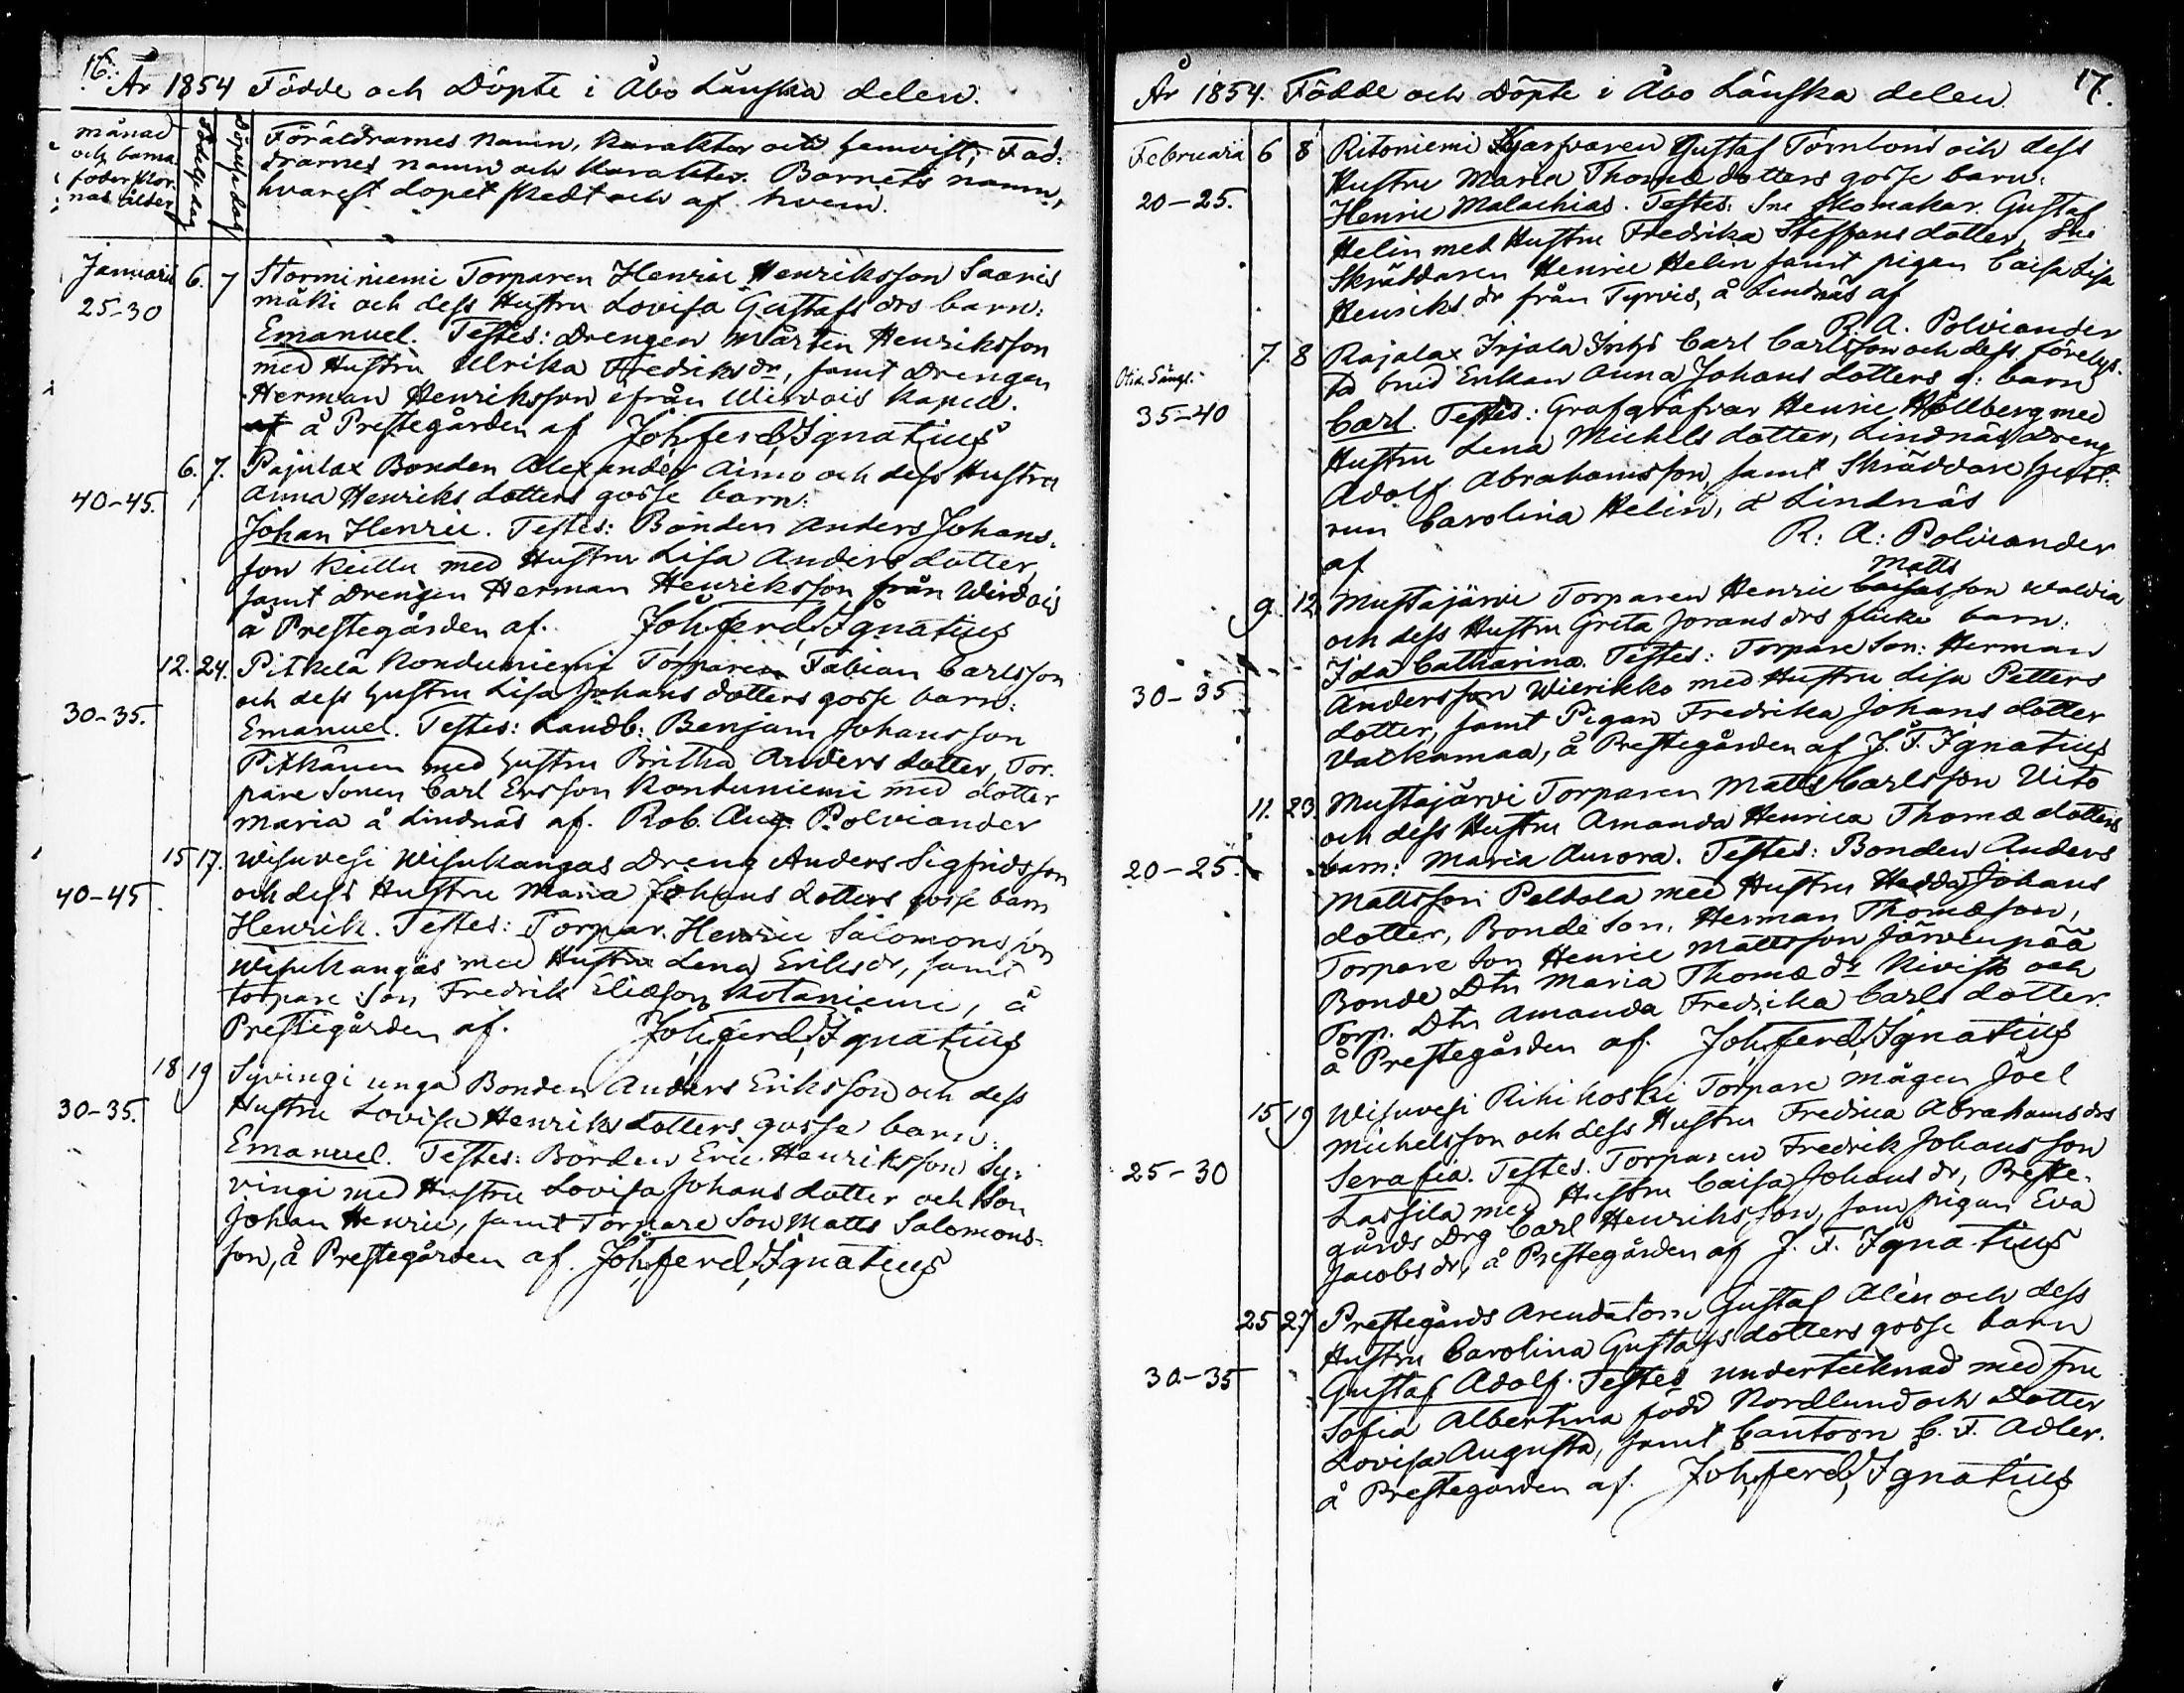 16.
År 1854 Födde och Döpte i Åbo Länska delen.
månad
och barna
föderskor
nas ålder
Födelsedag
Döpelsedag
Föräldrarnes Namn, Karakter och hemvist; Fad-
drarnes namn och Karakter. Barnets namn,
hvarest dopet skedt och af hvem.
Januarii 6. 7 Storminiemi Torparen Henric Henriksson Saaris
25-30 mäki och dess Hustru Lovisa Gustafs drs barn:
Emanuel. Testes: Drengen Mårten Henriksson
med Hustru Ulrika Fredriksdr, samt Drengen
Herman Henriksson från Wirdois Kapell.
å Prestegården af Joh. ferd. Ignatius
6. 7. Pajulax Bonden Alexander Aimo och dess Hustru
40-45. Anna Henriks dotters gosse barn:
Johan Henric. Testes: Bonden Anders Johans-
son Keittu med Hustru Lisa Anders dotter,
samt Drengen Herman Henriksson från Wirdois
å Prestegården af. Joh. ferd. Ignatius
12. 24. Pitkelä Konduniemi Torparen Fabian Carlsson
och dess hustru Lisa Johans dotters gosse barn:
30-35. Emanuel. Testes: Landb: Benjam Johansson
Pitkänen med hustru Britha Anders dotter, Tor-
pare Sonen Carl Ersson Kontuniemi med dotter
Maria å Lindnäs af. Rob. Aug. Polviander
15 17. Wisuvesi Wisukangas Dreng Anders Sigfridsson
40-45 och dess Hustru Maria Johans dotters gosse barn
Henrik. Testes: Torpar. Henric Salomonsson
Wisukangas med Hustru Lena Eriksdr, samt
torpare Son Fredrik Eliæson Kotaniemi, å
Prestegården af. Joh. ferd. Ignatius
18 19 Syvingi unga Bonden Anders Eriksson och dess
30-35. Hustru Lovisa Henriks dotters gosse barn:
Emanuel. Testes: Bonden Eric Henriksson Sy-
vingi med Hustru Lovisa Johans dotter och Son
Johan Henric, samt Torpare Son Matts Salomons-
son, å Prestegården af. Joh. ferd. Ignatius
17.
År 1854. Födde och Döpte i Åbo Länska delen.
Februarii 6 8 Ritoniemi Gustaf Törnbom och dess
Hustru Maria Thomæ dotters gosse barn:
20-25. Henric Malachias. Testes: Sne Skomakar. Gustaf
Helin med Hustru Fredrika Steffans dotter, Sne
Skräddaren Henric Helin samt pigan Caisa Lisa
Henriks dr från Tyrvis, å Lindnäs af
R. A. Polviander
7. 8 Rajalax Irjala Carl Carlsson och dess förelys-
ta brud Enkan Anna Johans dotters g: barn
35-40 Carl. Testes: Grafgräfvar Henric Hållberg med
Hustru Lena Michels dotter, Lindnäs Dreng
Adolf Abrahamsson, samt Skräddare
Carolina Helin, å Lindnäs
af R: A: Polviander
9. 12 Mustajärvi Torparen Henric Matts son Waldia
och dess Hustru Greta Jorans drs flicke barn:
Ida Catharina. Testes: Torpare Son: Herman
30-35 Andersson Wierikko med Hustru Lisa Petters
dotter, samt Pigan Fredrika Johans dotter
Valkamaa, å Prestegården af J. F. Ignatius
11. 23 Mustajärvi Torparen Matts Carlsson Uito
och dess Hustru Amanda Henrica Thomæ dotters
20-25. barn: Maria Aurora. Testes: Bonden Anders
Mattsson Peldola med Hustru Hedda Johans
dotter, Bonde Son, Herman Thomæson,
Torpare Son Henric Mattsson Järvenpää
Bonde Dtr Maria Thomæ dr Kivistö och
Torp. Dtr Amanda Fredrika Carls dotter.
å Prestegården af. Joh. ferd. Ignatius
15 19 Wisuvesi Rihikoski Torpare mågen Joel
Michelsson och dess Hustru Fredrica Abrahams drs
25-30 Serafia. Testes. Torparen Fredrik Johansson
Lassila med Hustru Caisa Johans dr, Preste-
gårds Drg Carl Henriksson, sam pigan Eva
Jacobs dr, å Prestegården af J. F. Ignatius
25 27 Prestegårds Arendatorn Gustaf Alén och dess
Hustru Carolina Gustafs dotters gosse barn
30-35 Gustaf Adolf. Testes undertecknad med fru
Sofia Albertina född Nordlund och Dotter
Lovisa Augusta, samt Cantorn C. F. Adler.
å Prestegården af. Joh. ferd. Ignatius